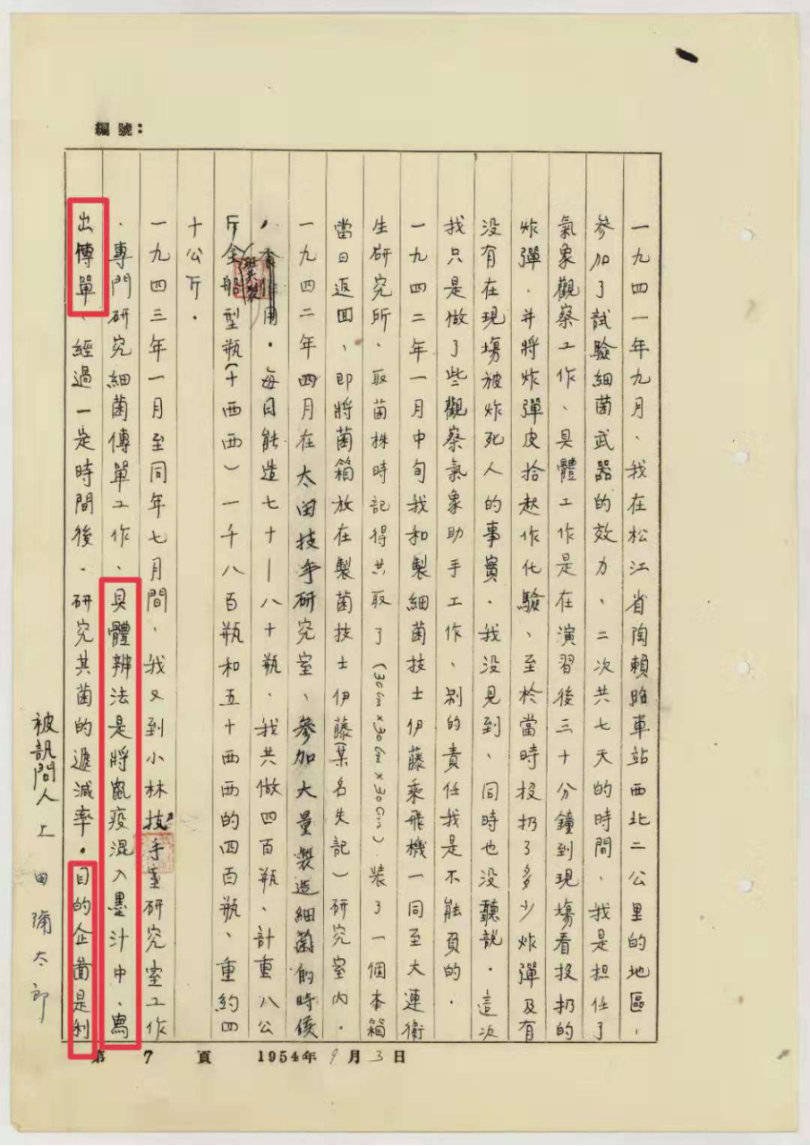 編號：
一九四一年九月、我在松江省陶賴昭車站西北二公里的地區，
參加了試驗細菌武器的效力、二次共七天的時間、我是担任了
氣象觀察工作、具體工作是在演習後三十分鐘到現場看投扔的
炸彈．并將炸彈皮拾起作化驗、至於當時投扔了多少炸彈及有
没有在現場被炸死人的事實．我没見到、同時也没聽說．這次
我只是做了些觀察氣象助手工作、别的責任我是不能負的．
一九四二年一月中旬我和製細菌技士伊藤乘飛機一同至大連衛
生研究所、取菌株時記得共取了（30cm×30cm×30cm）裝了一個本箱
當日返回、即將菌箱放在製菌技士伊藤（某名失記）研究室内．
一九四二年四月在太田技手研究室、參加大量製造細菌的時候
用．每日能造七十—八十瓶．我共做四百瓶、計重八公
斤全般型瓶（十西西）一千八百瓶和五十西西的四百瓶、重約四
十公斤．
一九四三年一月至同年七月間．我又到小林技手室研究室工作
．專門研究細菌傳單工作、具體辨法是將鼠疫混入墨汁中．寫
出傳單、經過一定時間後．研究其菌的遞減率。目的企啚是利
被訊問人 上田彌太郎
第 7 頁 1954年 9 月 3 日